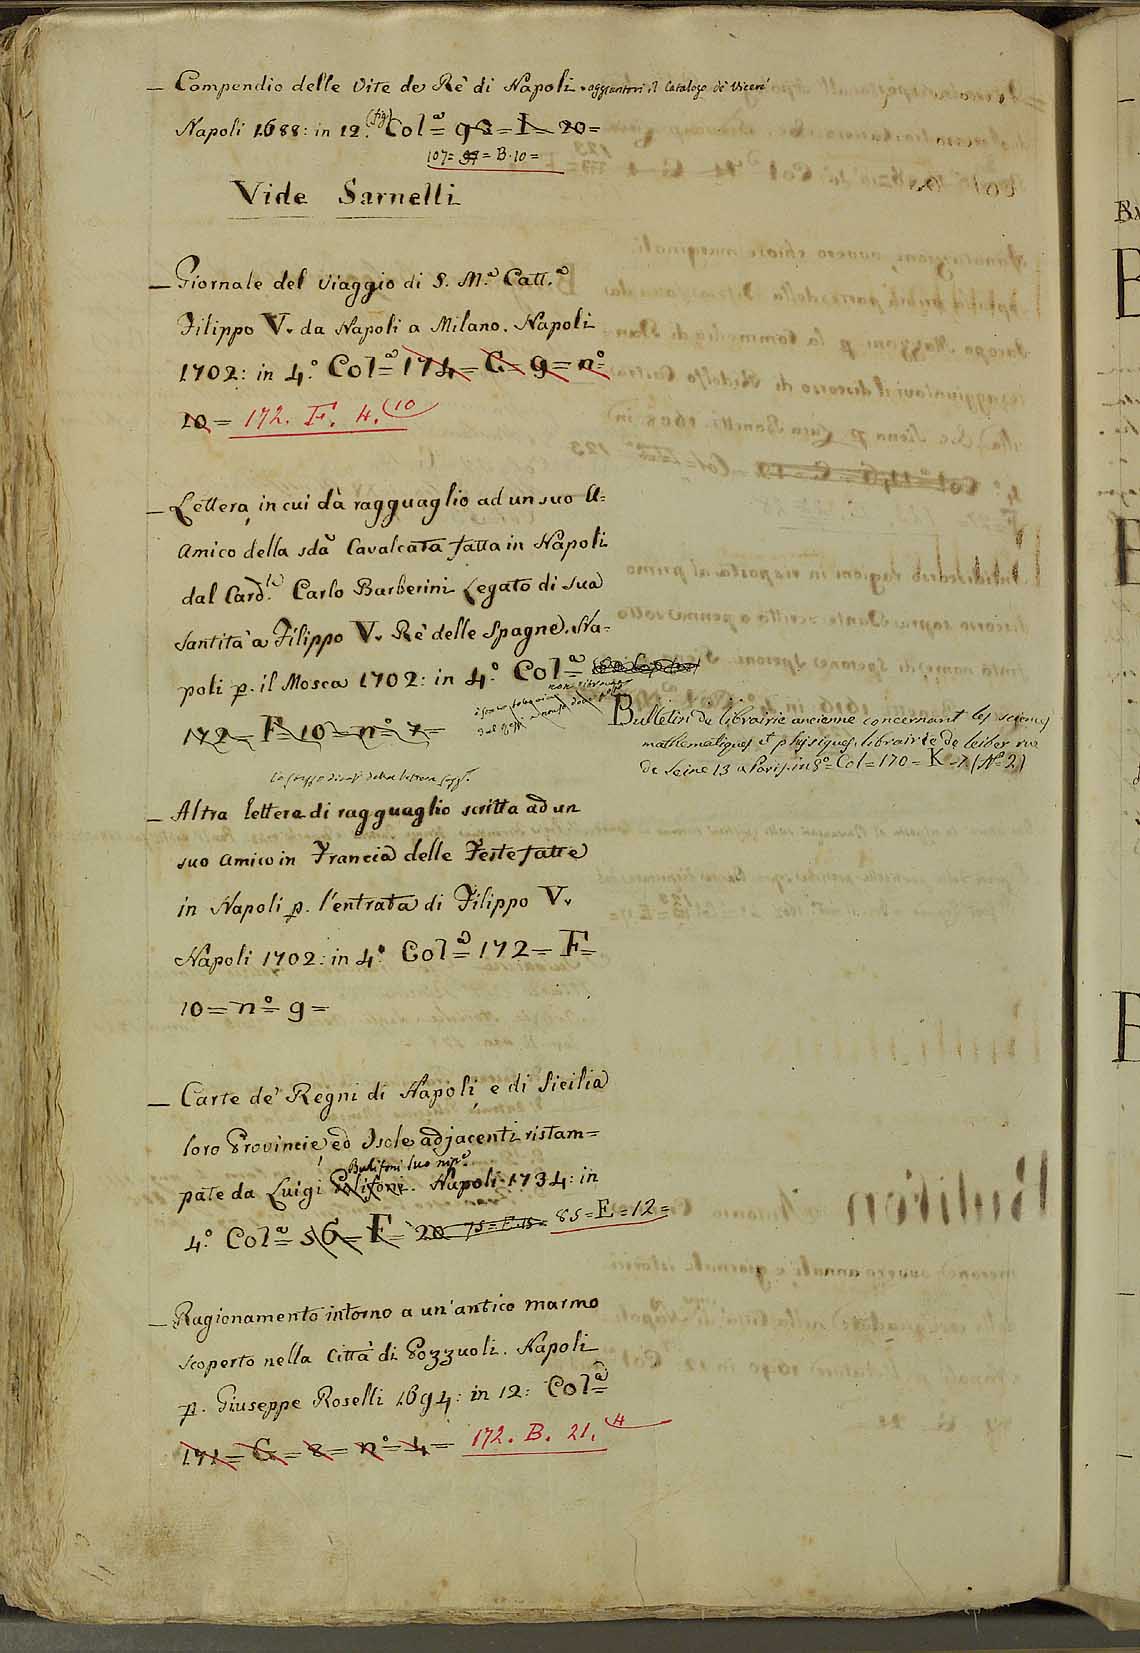 — Compendio delle Vite de Rè di Napoli aggiuntovi il Catalogo de Vicerè
Napoli 1688: in 12.° (fig) Col.ª = 98 = I = 20 =
107 = 97 = B. 10 =
Vide Sarnelli
— Giornale del Viaggio di S. M.ª Catt.ª
Filippo V. da Napoli a Milano. Napoli
1702: in 4.° Col.ª 174 = C = 9 = n.°
10 = 172. F. 4. (10
— Lettera, in cui dà ragguaglio ad un suo A=
Amico della sda Cavalcata fatta in Napoli
dal Card.le Carlo Barberini Legato di sua
Santità a Filippo V. Rè delle Spagne. Na=
poli p. il Mosca 1702: in 4.° Col.ª
172 = F = 10 = n.° 7 =
— Altra lettera di ragguaglio scritta ad un
suo amico in Francia delle Feste fatte
in Napoli p. l'entrata di Filippo V.
Napoli 1702: in 4.° Col.ª 172 = F =
10 = n.° 9 =
— Carte de' Regni di Napoli, e di Sicilia
loro Provincie, ed Isole adjacenti ristam=
Bulifoni suo nip.e
pate da Luigi Bolifoni. Napoli 1734: in
4.° Col.ª 56 = F = 20 75 = F. 15 = 85 = E = 12 =
— Ragionamento intorno a un'antico marmo
scoperto nella Città di Pozzuoli. Napoli
p. Giuseppe Roselli 1694: in 12: Col.ª
171 = G = 8 = n.° 4 = 172. B. 21. 4
Bulletin de librairie ancienne concernant les sciences
mathematiques et physiques, librairie de leiber rue
de Seine 13 a Paris. in 8.° Col = 170 = K - 7 (N.° 2)